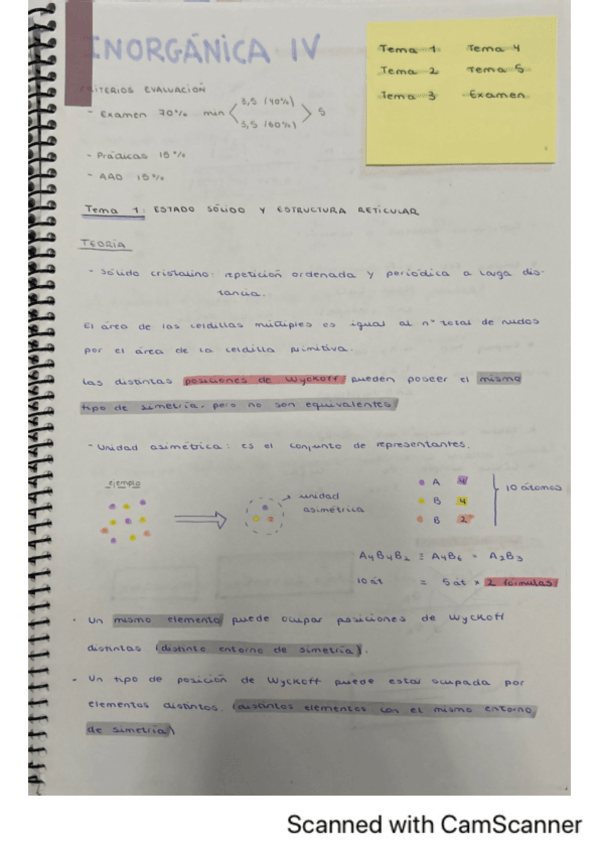 INORGÁNICA IV
Tema 1 Tema 4
Tema 2 Tema 5
Tema 3 Examen
CRITERIOS EVALUACIÓN
- Examen 70% min 3,5 (40%) 3,5 (60%) 5
- Prácticas 15%
- AAD 15%
Tema 1: ESTADO SÓLIDO Y ESTRUCTURA RETICULAR
TEORÍA
- Sólido cristalino: repetición ordenada y periódica a larga dis-
tancia.
El área de las celdillas múltiples es igual al nº total de nudos
por el área de la celdilla primitiva.
Las distintas posiciones de Wyckoff pueden poseer el mismo
tipo de simetría, pero no son equivalentes
- Unidad asimétrica: es el conjunto de representantes.
ejemplo
unidad
asimétrica
A 4
B 4
B 2
10 átomos
A4B4B2 = A4B6 = A2B3
10 át = 5 át x 2 fórmulas
· Un mismo elemento puede ocupar posiciones de Wyckoff
distintas (distinto entorno de simetría).
- Un tipo de posición de Wyckoff puede estar ocupada por
elementos distintos. (distintos elementos con el mismo entorno
de simetría)
Scanned with CamScanner